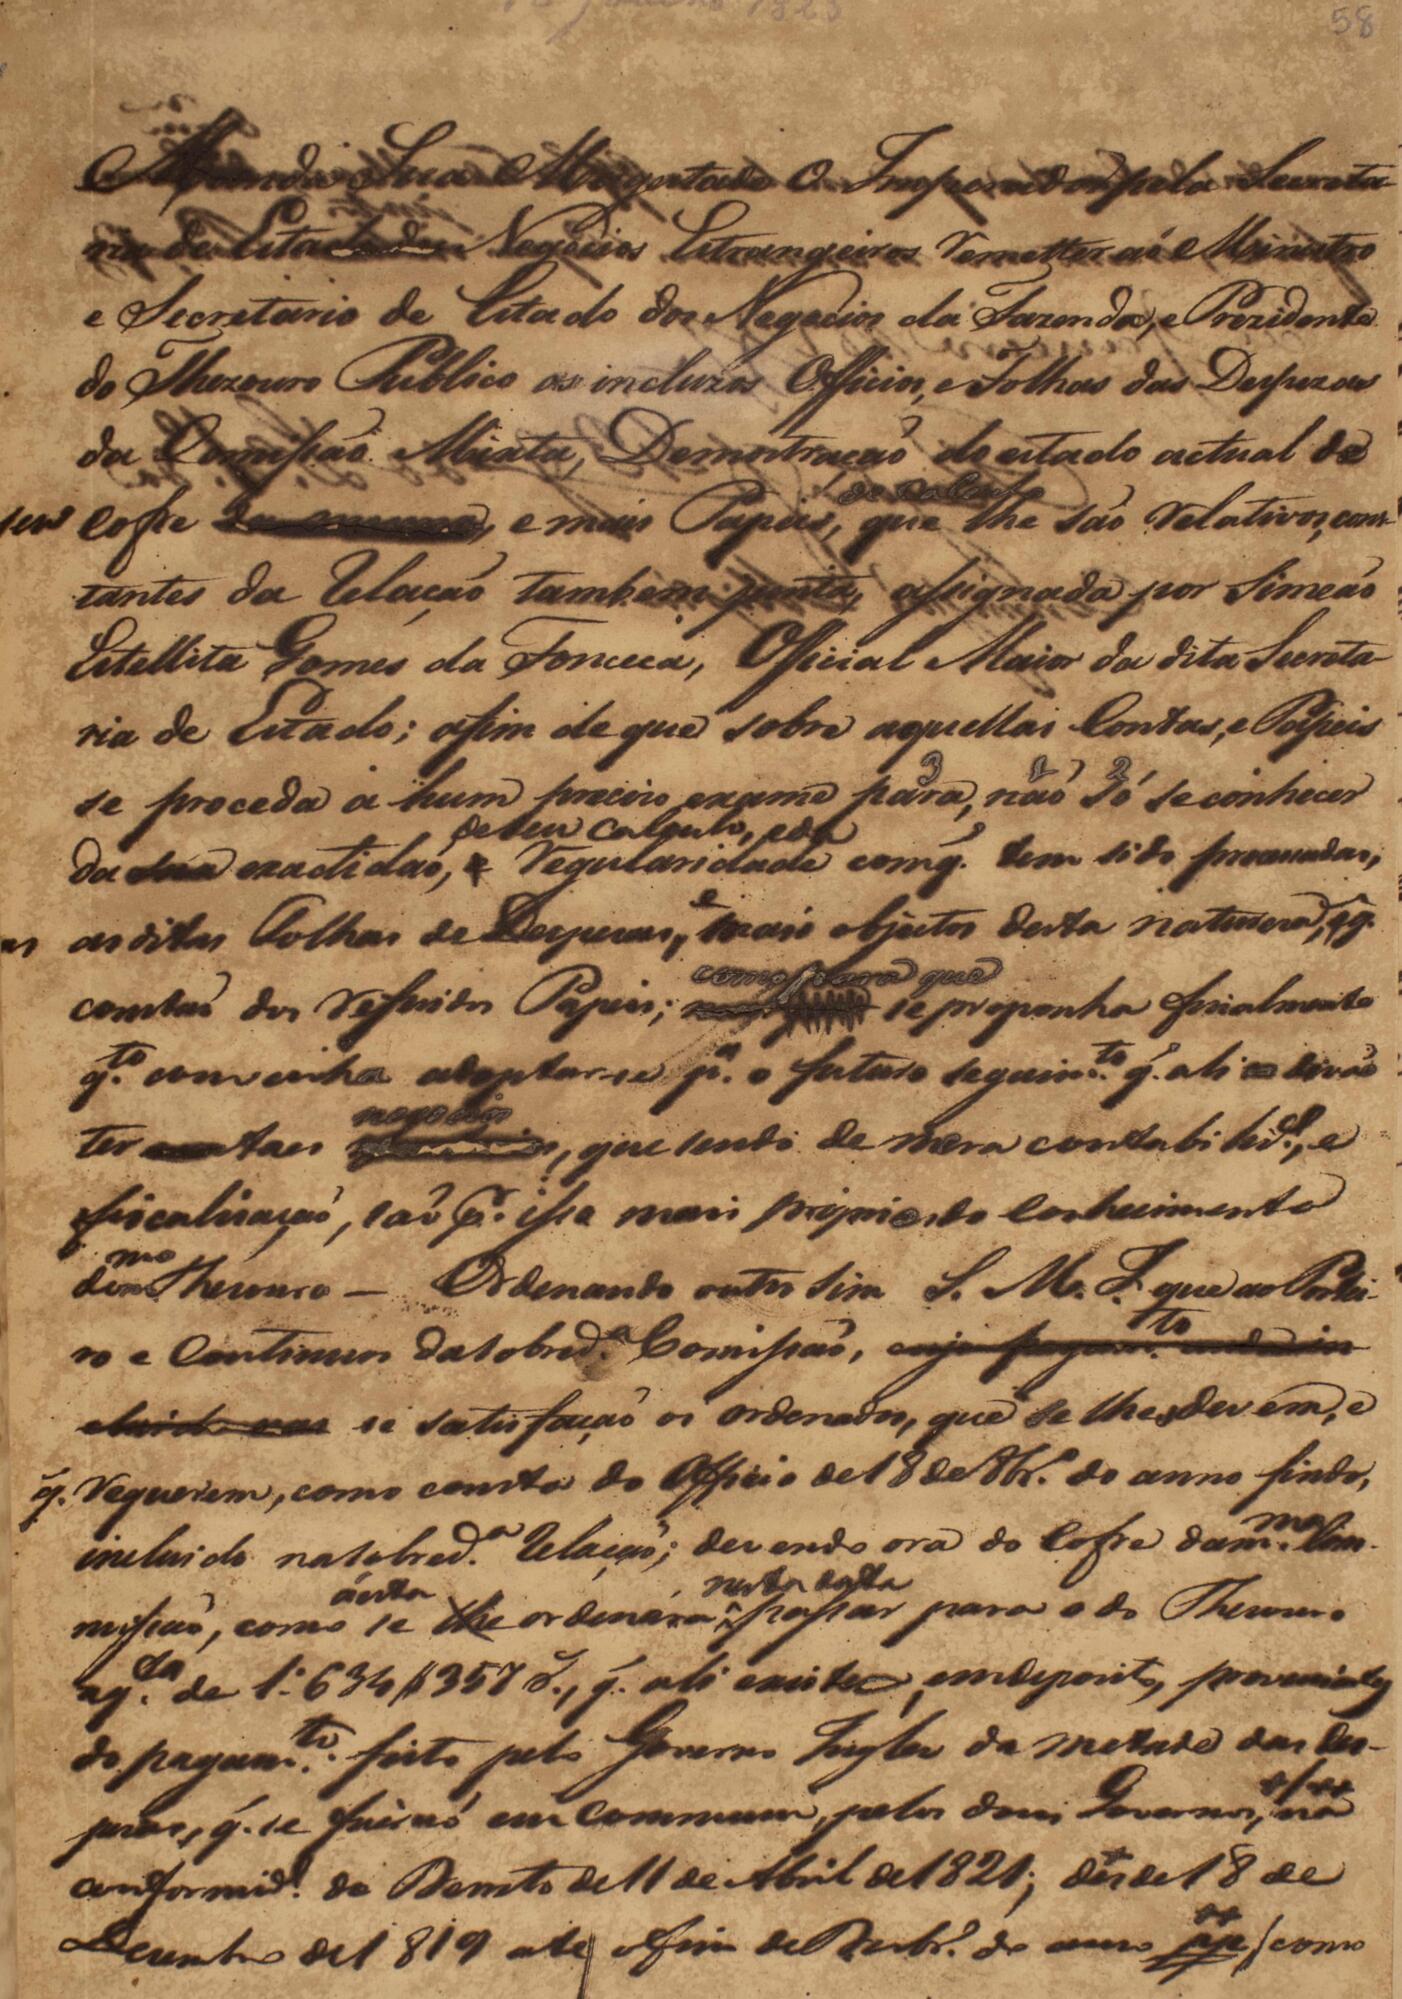 58
Manda Sua Magestade O Imperador pela Secreta-
ria de Estado dos Negocios Estrangeiros remetter ao Ministro
e Secretario de Estado dos Negocios da Fazenda, e Prezidente
do Thezouro Publico os incluzos Officios, e Folhas das Despezas
da Comissaõ Mixta, Demostraçaõ do estado actual do
seu Cofre, e mais Papeis, que lhe saõ relativos, cons-
tantes da Relaçaõ tambem junta, assignada por Simeaõ
Estellita Gomes da Fonceca, Official Maior da dita Secreta-
ria de Estado; afim de que sobre aquellas Contas, e Papeis
se proceda a hum precizo exame para, naõ só se conhecer
3 1 2
de seu calculo, e da
da sua exactidaõ, e regularidade com q. tem sido processadas,
as ditas Folhas de Despezas, e mais objectos desta natureza, q.
constaõ dos referidos Papeis;
como para que
se proponha finalmente
q.to convenha adoptar-se p.a o futuro seguim.to q. ali deváõ
negocios
ter taes, que sendo de mera contabilid.e, e
fiscalizaçaõ, saõ p.r isso mais proprios do Conhecimento
do m.mo Thezouro — Ordenando outro sim S. M. I. que ao Portei-
ro e Continuos da sobred.a Comissaõ, cujo pagam.to
se satisfaçaõ os ordenados, que se lhes devem, e
q. requerem, como consta do Officio de 18 de 8br.o do anno findo,
incluido na sobred.a Relaçaõ; devendo ora do Cofre da m.ma Com-
missaõ, como se lhe ordenára
á esta
nesta data
passar para o do Thezouro
a q.ta de 1:634$357 r.s, q. ali existe em deposito, proveniente
do pagam.to feito pelo Governo Inglez da metade das Des-
pezas, q. se fizeraõ em commum, pelos dous Governos, na
conformid.e do Decreto de 11 de Abril de 1821; desde 18 de
Dezembro de 1819 até o fim de do anno (como